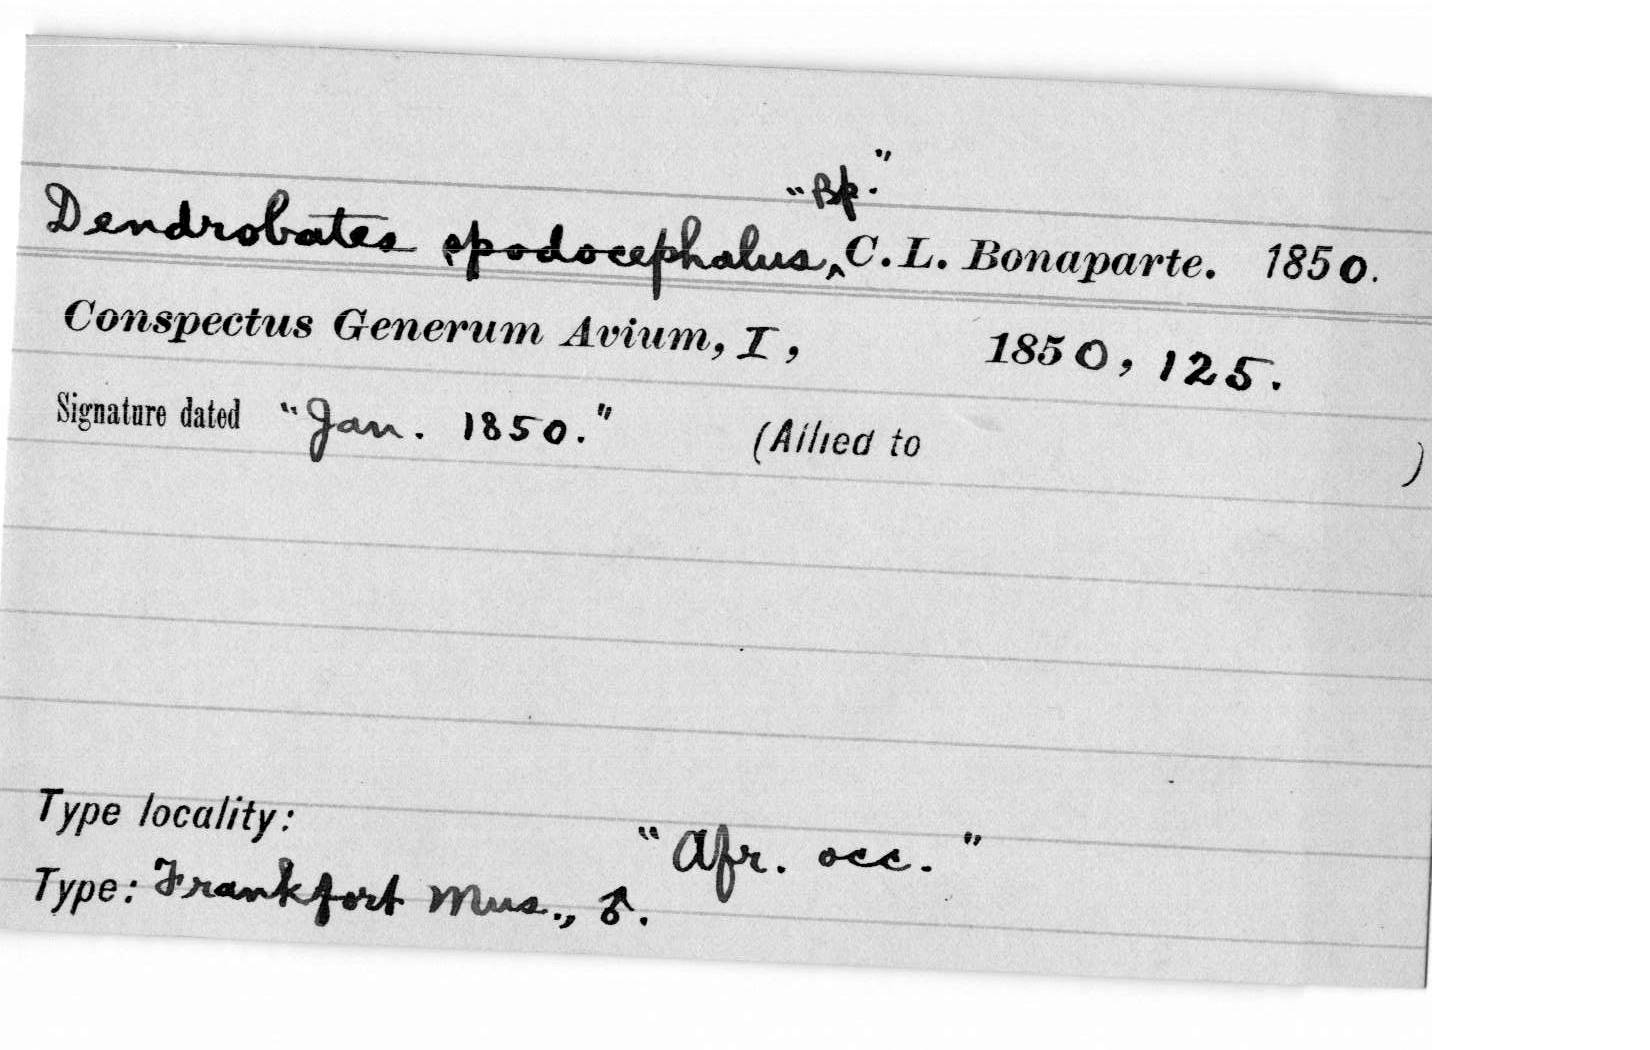 "Bp."
Dendrobates spodocephalus,^C. L. Bonaparte. 1850.
Conspectus Generum Avium, I, 1850, 125.
Signature dated "Jan. 1850." (Allied to )
Type locality:
"Afr. occ."
Type: Frankfort Mus., ♂.